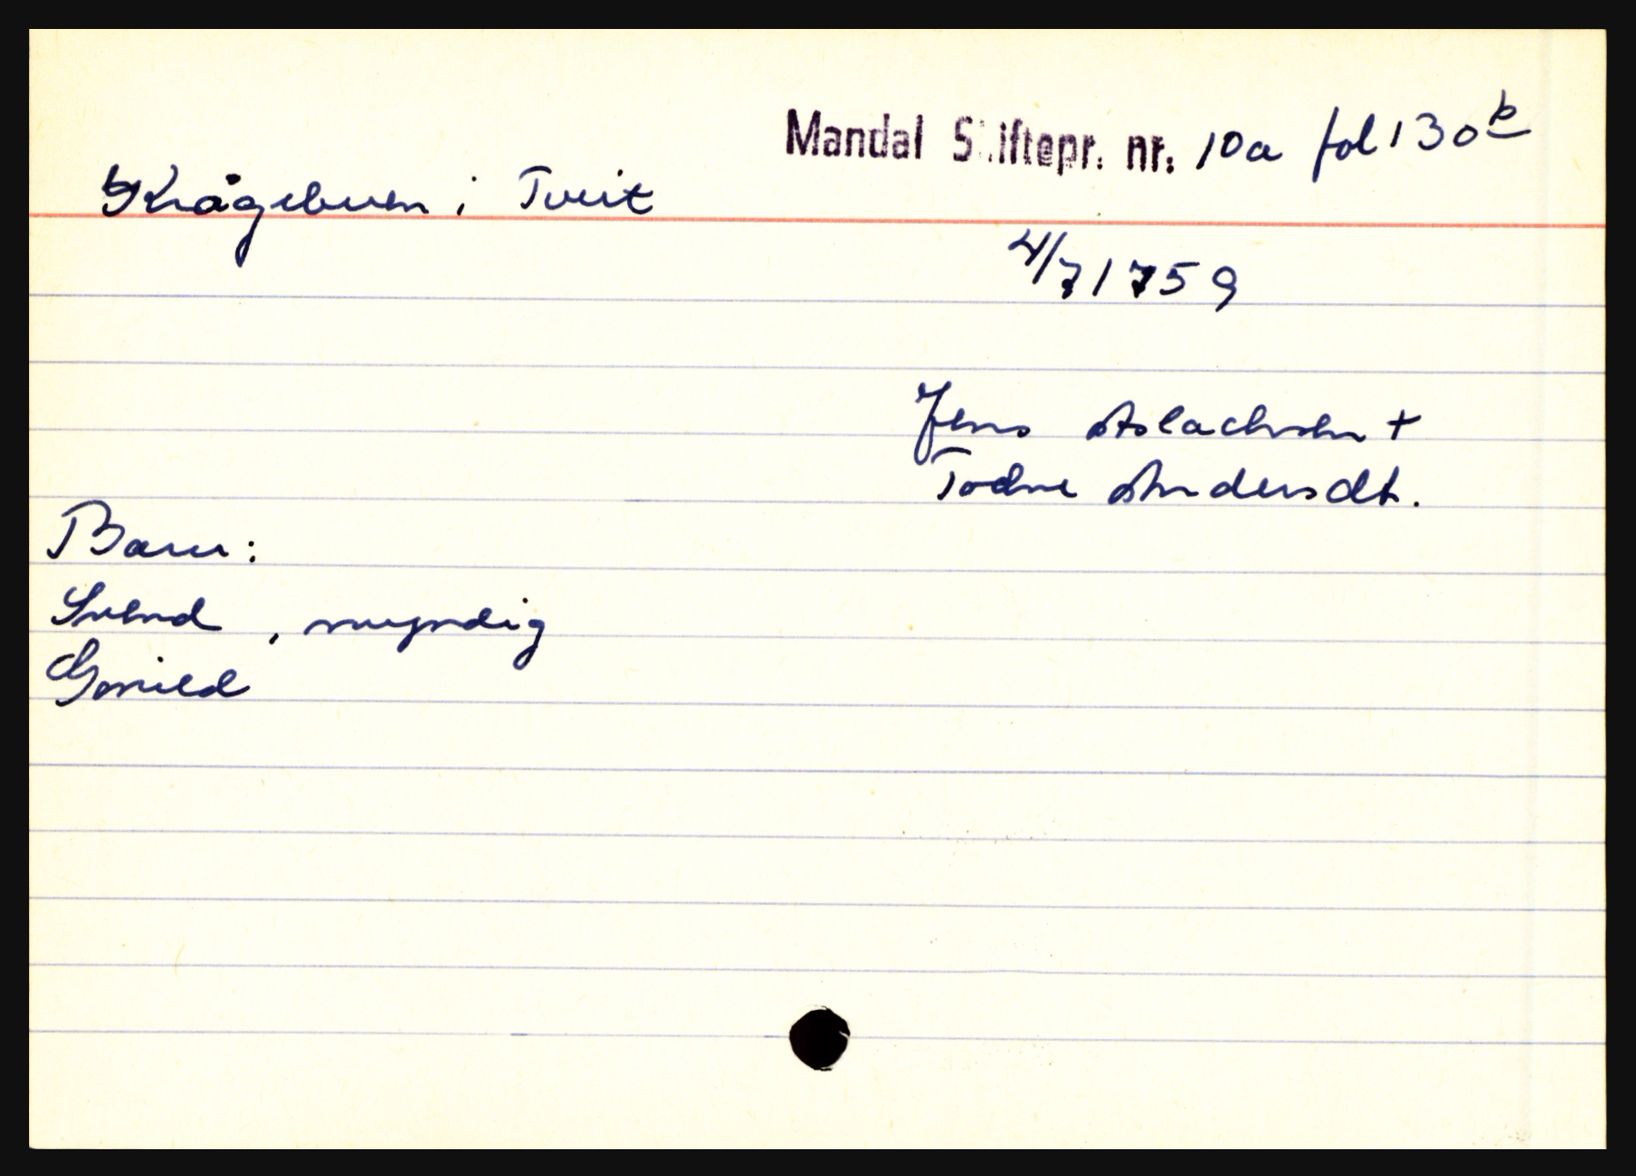 Mandal Skiftepr. nr. 10a fol 130b
Krågebuen i Tveit
4/7 1759
Jens Aslachsen +
Todne Andersdt.
Barn:
Svend, myndig
Gonild